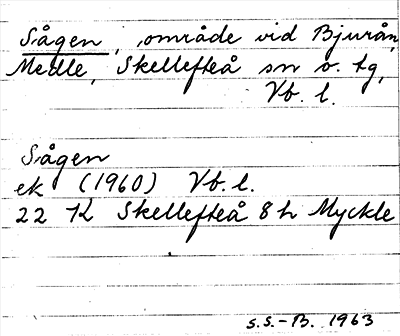 Sågen, område vid Bjurån,
Medle, Skellefteå sn o. tg,
Vb. l.
Sågen
ek (1960) Vb. l.
22 K Skellefteå 8 h Myckle
S.S.-B. 1963